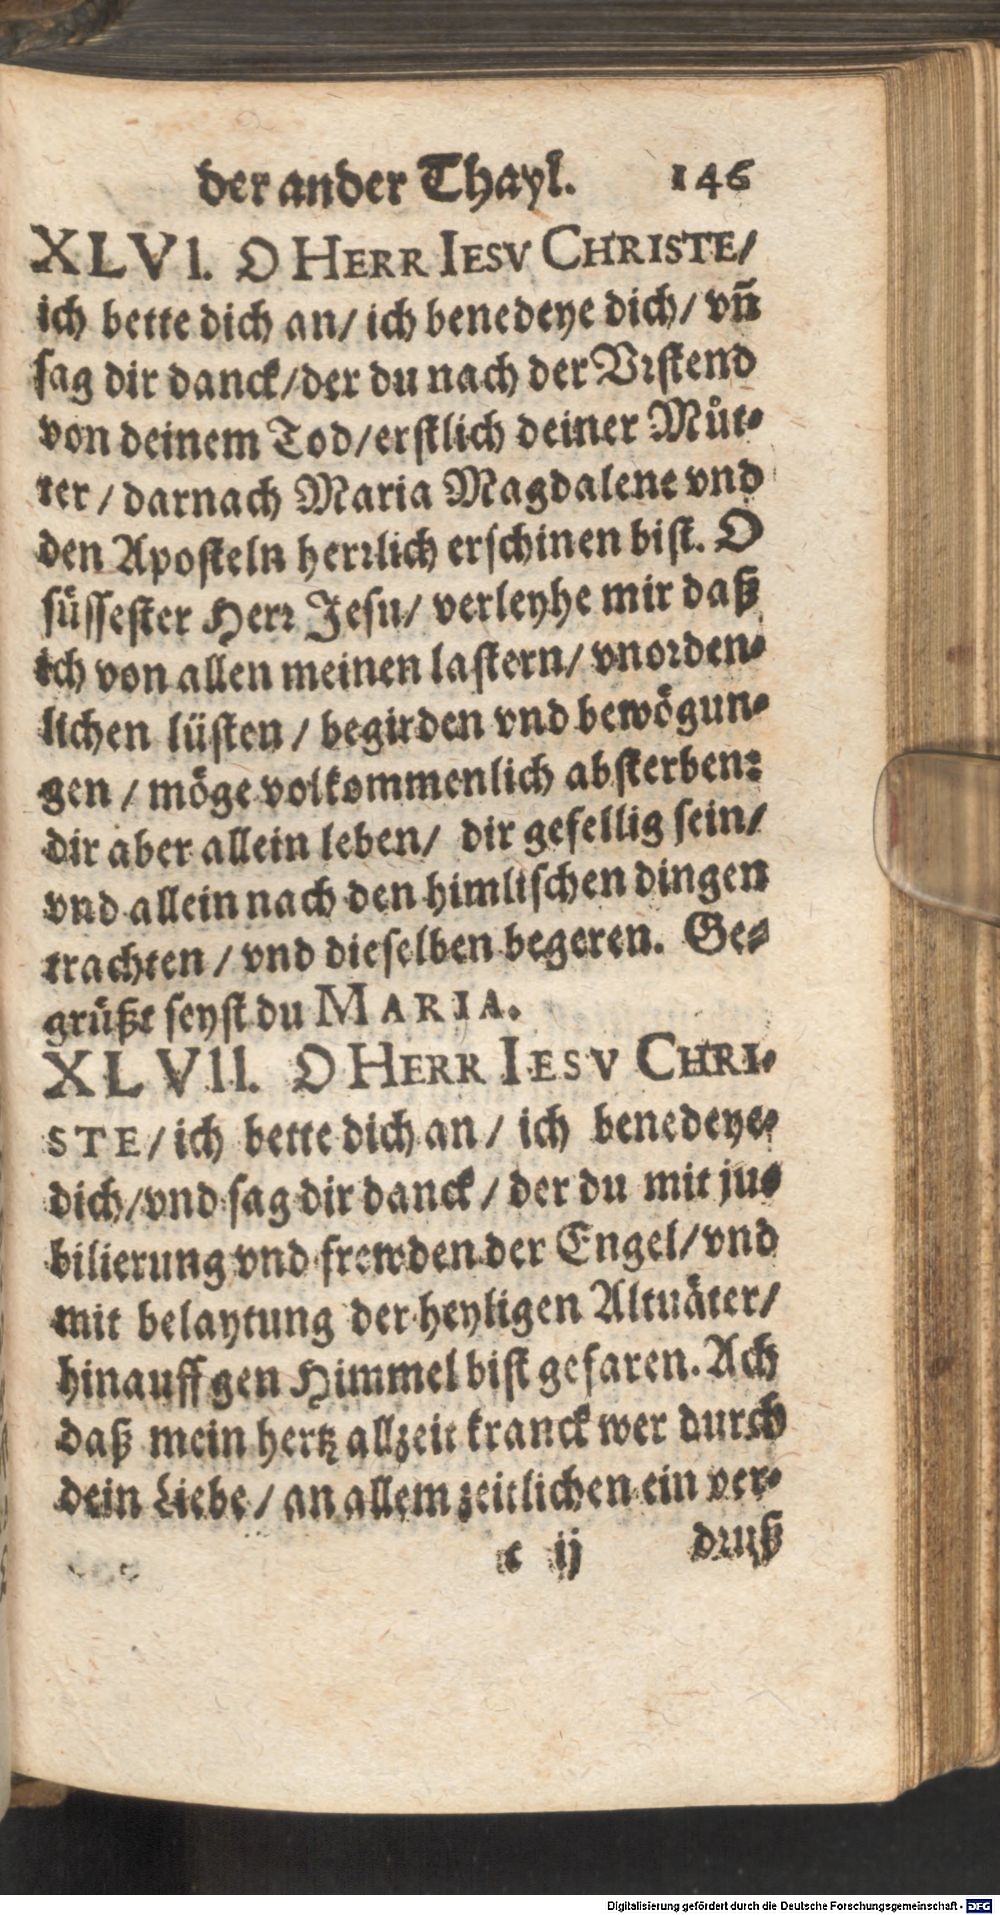 der ander Thayl. 146
XLVI. O HERR IESV CHRISTE/
ich bette dich an/ ich benedeye dich/ vn̄
sag dir danck/der du nach der Vrstend
von deinem Tod/erstlich deiner Můt-
ter / darnach Maria Magdalene vnd
den Aposteln herrlich erschinen bist. O
süssester Herr Jesu/ verleyhe mir daß
ich von allen meinen lastern/ vnorden-
lichen lüsten / begirden vnd bewögun-
gen / möge volkommenlich absterben:
dir aber allein leben/ dir gefellig sein/
vnd allein nach den himlischen dingen
trachten / vnd dieselben begeren. Ge-
grüßt seyst du MARIA.
XLVII. O HERR IESV CHRI-
STE/ ich bette dich an / ich benedeye-
dich/vnd sag dir danck / der du mit ju-
bilierung vnd frewden der Engel/ vnd
mit belaytung der heyligen Altuäter/
hinauff gen Himmel bist gefaren. Ach
daß mein hertz allzeit kranck wer durch
dein Liebe/ an allem zeitlichen ein ver-
c ij druß
Digitalisierung gefördert durch die Deutsche Forschungsgemeinschaft - DFG